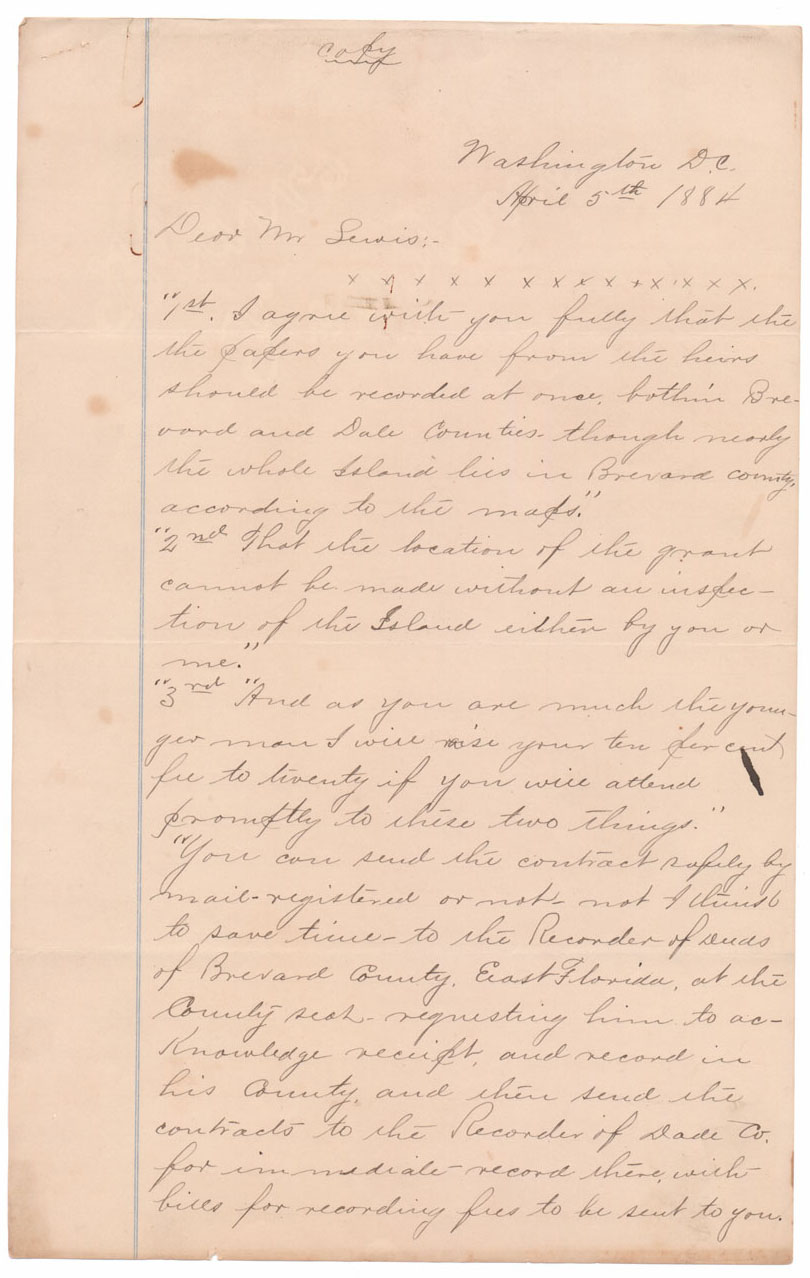 copy
Washington D.C.
April 5th 1884
Dear Mr Lewis:-
x x x x x x x x x x x x x x x.
"1st. I agree with you fully that the
the papers you have from the heirs
should be recorded at once, both in Bre-
vard and Dale Counties - though nearly
the whole Island lies in Brevard county,
according to the maps."
"2nd That the location of the grant
cannot be made without an inspec-
tion of the Island either by you or
me."
"3rd "And as you are much the youn-
ger man I will raise your ten per cent
fee to twenty if you will attend
promptly to these two things."
"You can send the contract safely by
mail - registered or not - not I think
to save time - to the Recorder of Deeds
of Brevard County, East Florida, at the
County seat - requesting him to ac-
knowledge receipt, and record in
his County, and then send the
contracts to the Recorder of Dade Co.
for immediate record there, with
bills for recording fees to be sent to you.